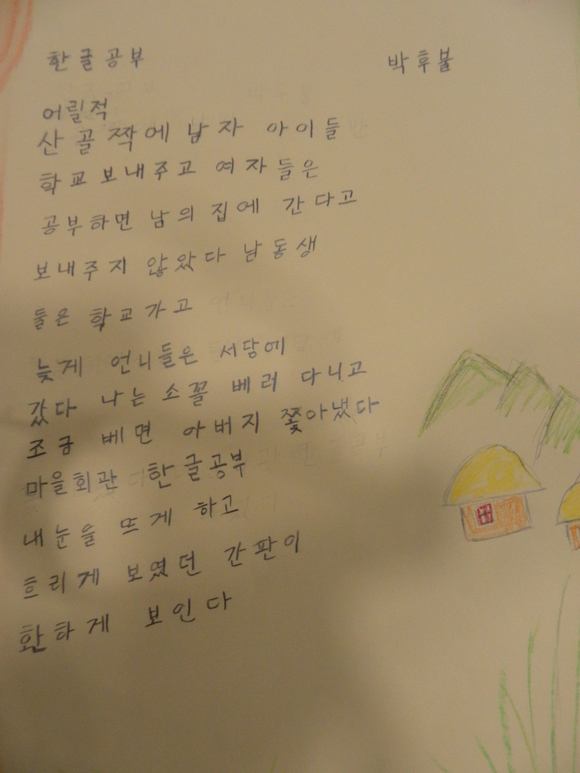 한글공부 박후불
어릴적
산골짝에 남자 아이들
학교 보내주고 여자들은
공부하면 남의 집에 간다고
보내주지 않았다 남동생
들은 학교가고
늦게 언니들은 서당에
갔다 나는 소꼴 베러 다니고
조금 베면 아버지 쫓아냈다
마을회관 한글공부
내눈을 뜨게 하고
흐리게 보였던 간판이
환하게 보인다